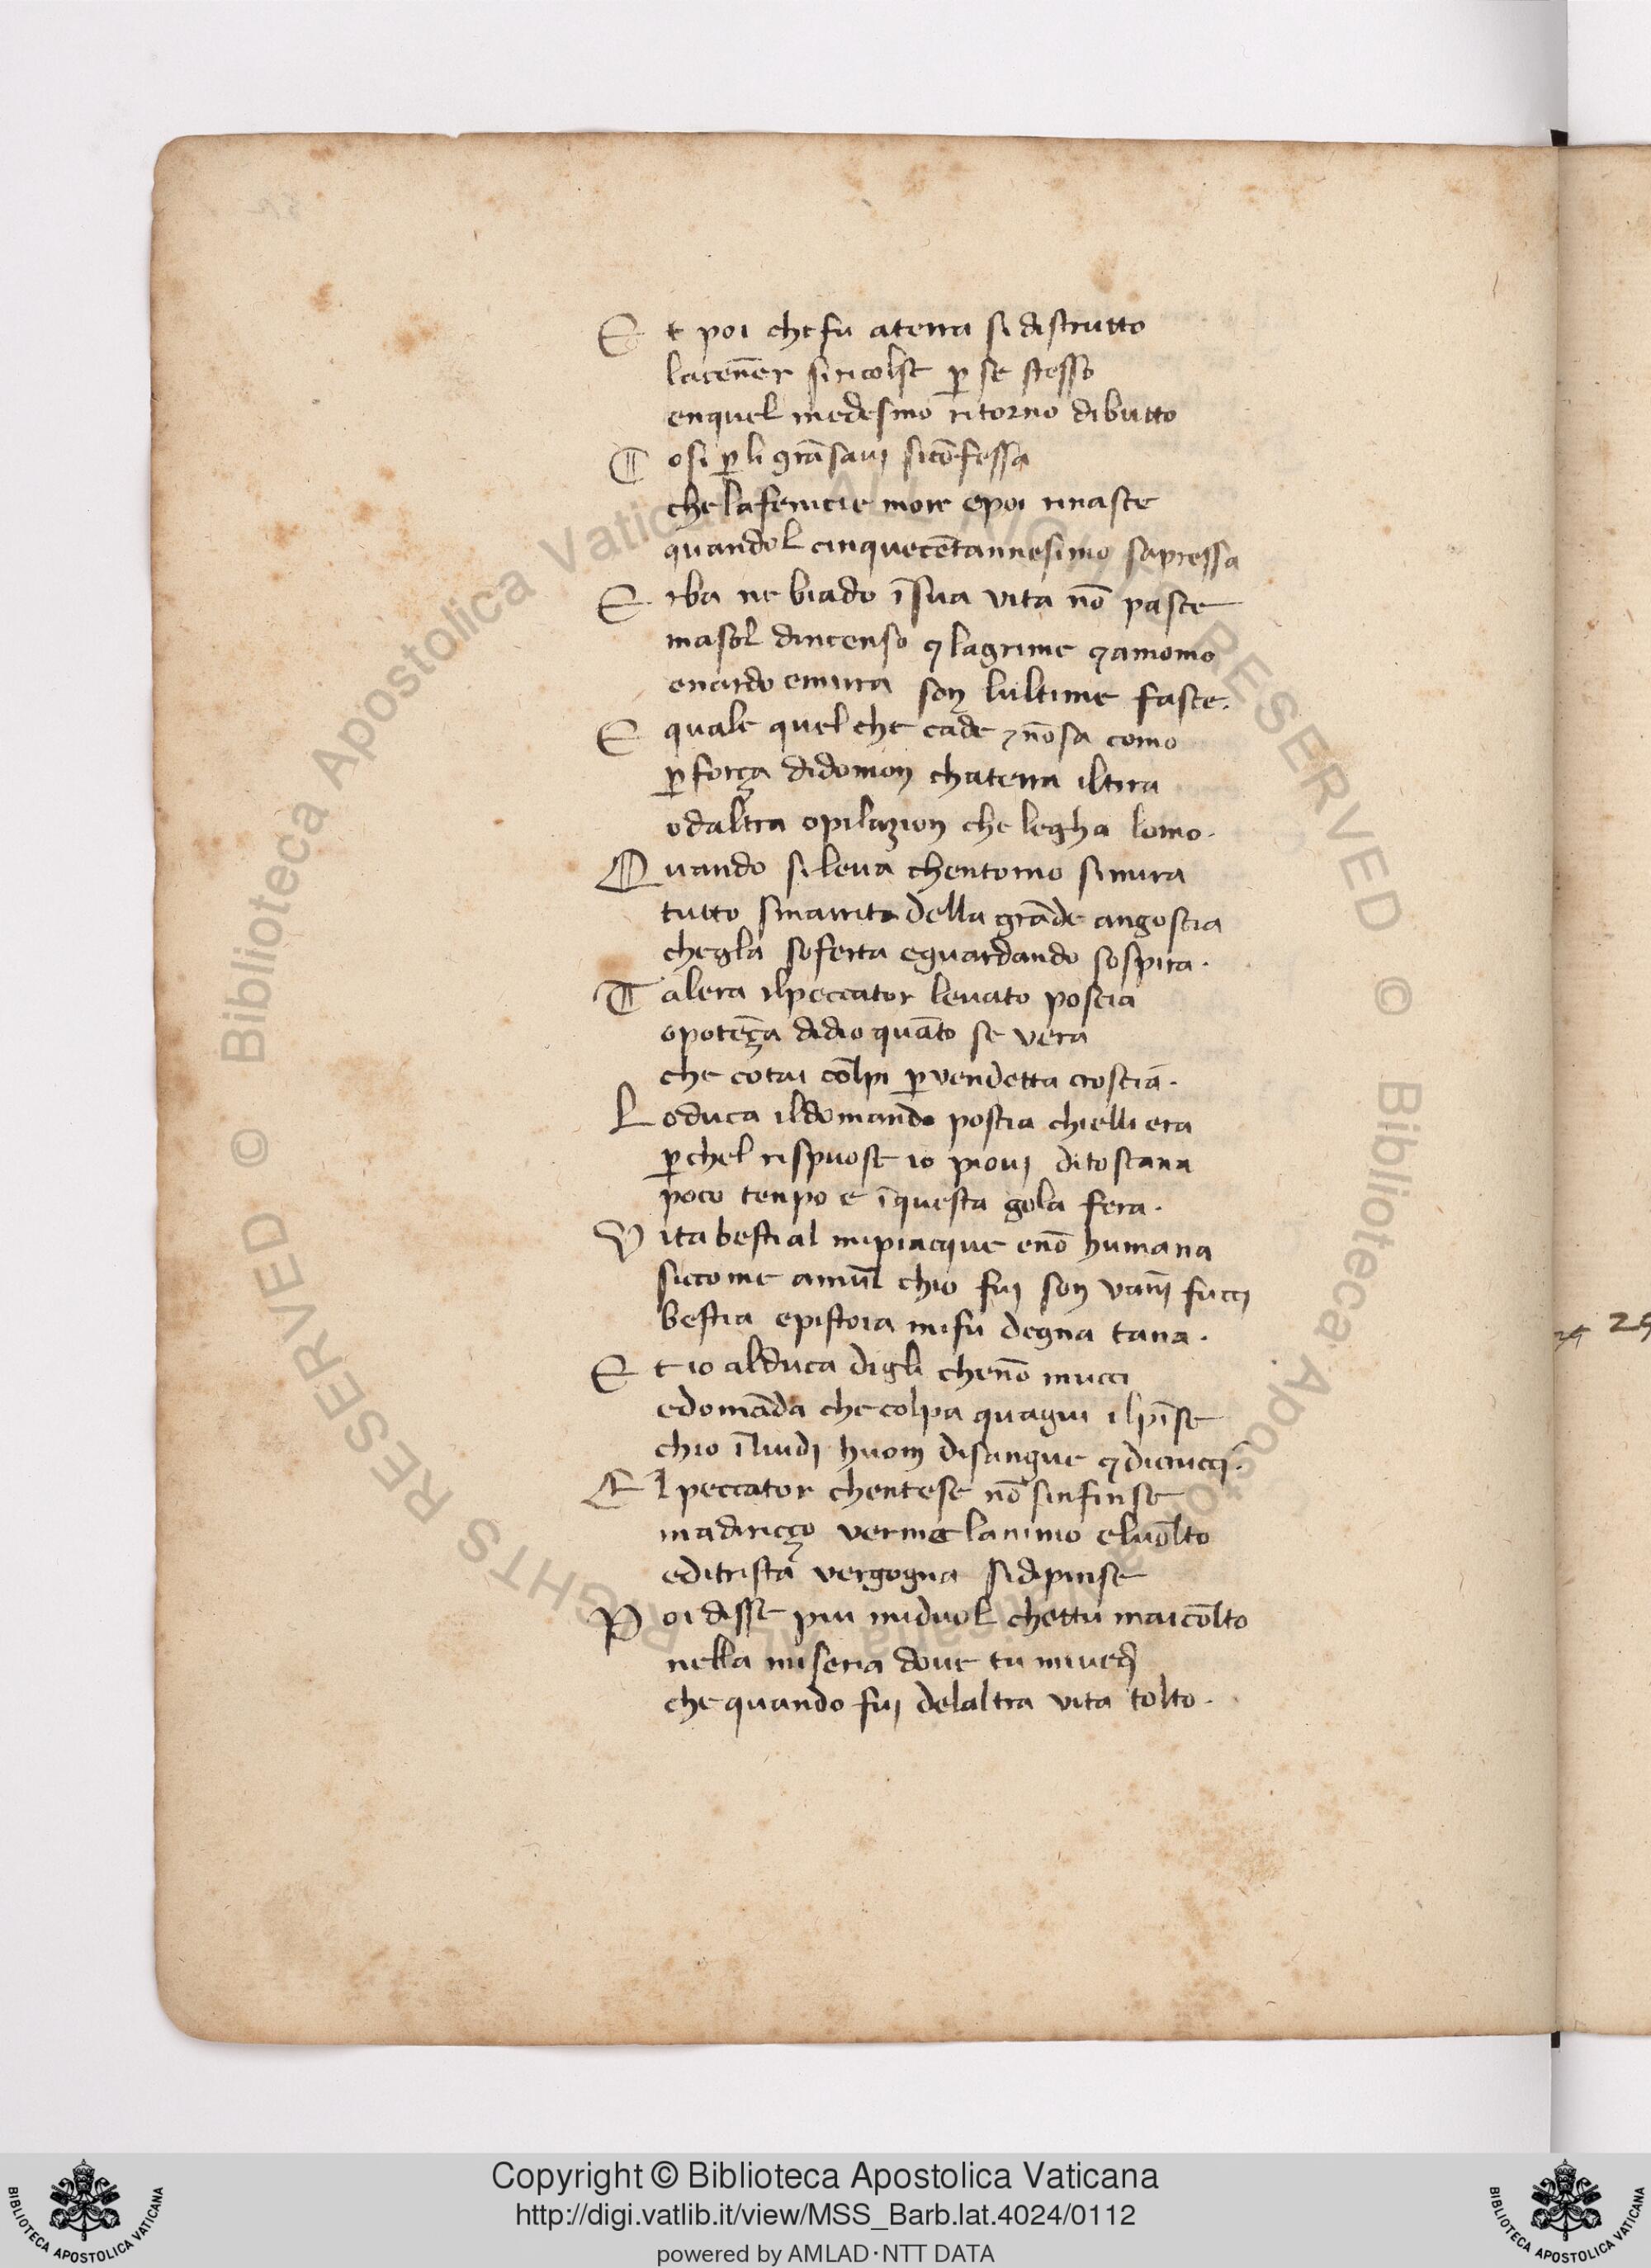 Et poi che fu aterra si distrutto
lacen̄er siricolse ꝑ se stesso
enquel medesmo ritorno dibutto
Cosi ꝑli grā savi sicōfessa
che lafenicie more epoi rinasce
quandol cinquecētannesimo sapressa
Erba ne biado īsua vita nō pasce
masol dincenso ⁊ lagrime ⁊amomo
enardo emirra son lultime fasce.
E quale quel che cade ⁊nōsa como
ꝑ força didomon chaterra iltira
odaltra opilazion che legha lomo.
Quando sileva chentorno simira
tutto smarrito della grāde angoscia
chegla soferta eguardando sospira.
Talera ilpeccator levato poscia
opotēça didio quāto se vera
che cotai colpi ꝑvendetta croscia.
Loduca ildomando poscia chielli era
ꝑchel rispuose io piovi ditoscana
poco tenpo e īquesta gola fera.
Vita bestial mipiacque enō humana
siccome amul chio fui son vanī fucci
bestia epistoia mifu degna tana.
Et io alduca digli chenō mucci
edomāda che colpa quagiu ilpīse
chio īlvidi huom disangue ⁊dicrucci.
El peccator chentese nō sinfinse
madiriçço verme lanimo elvolto
editrista vergogna sidipinse
Poi disse piu miduol chettu maicolto
nella miseria dove tu mivedi
che quando fui delaltra vita tolto.
29
Biblioteca Apostolica Vaticana ALL RIGHTS RESERVED ©
Biblioteca Apostolica Vaticana ALL RIGHTS RESERVED ©
Copyright © Biblioteca Apostolica Vaticana
http://digi.vatlib.it/view/MSS_Barb.lat.4024/0112
powered by AMLAD·NTT DATA
BIBLIOTECA APOSTOLICA VATICANA
BIBLIOTECA APOSTOLICA VATICANA